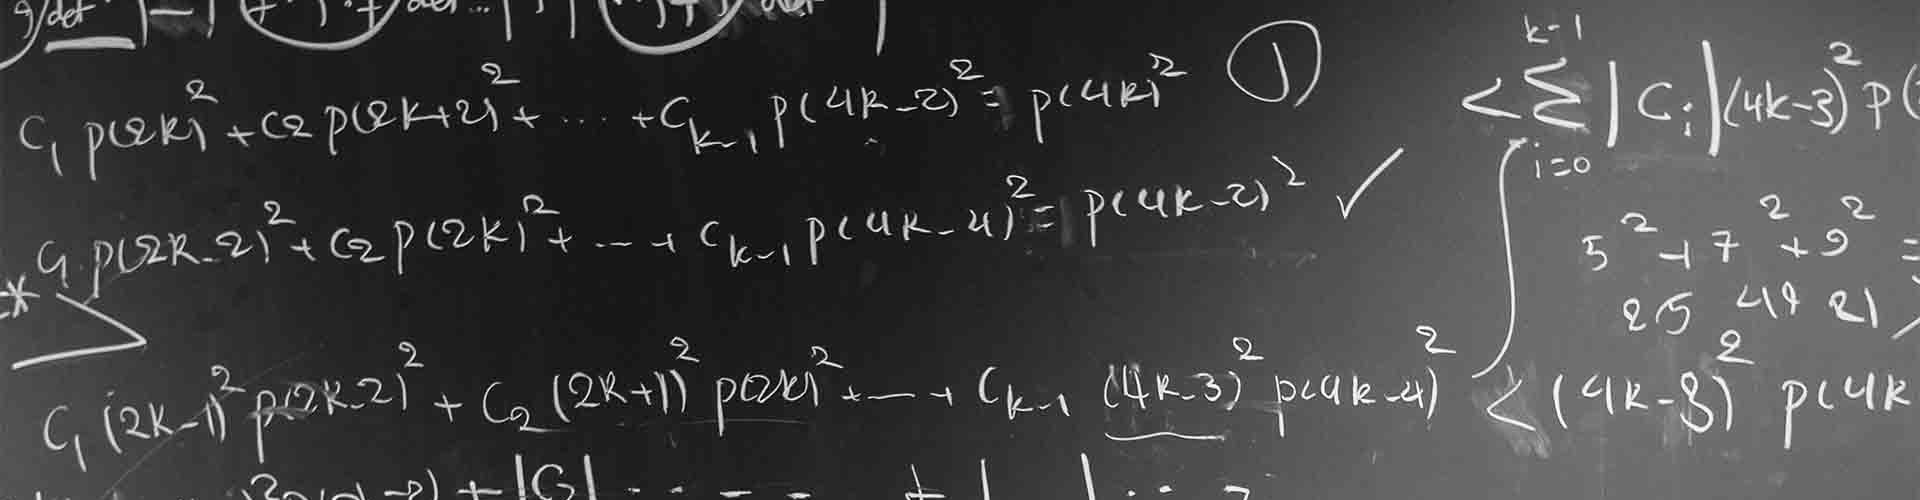 g/det
C₁ p(2k)² + C₂ p(2k+2)² + ... + Cₖ₋₁ p(4k-2)² = p(4k)² ①
C₁ p(2k-2)² + C₂ p(2k)² + ... + Cₖ₋₁ p(4k-4)² = p(4k-2)² ✓
C₁ (2k-1)² p(2k-2)² + C₂ (2k+1)² p(2k)² + ... + Cₖ₋₁ (4k-3)² p(4k-4)² < (4k-3)² p(4k
k-1
< Σ |Cᵢ| (4k-3)² p(
i=0
5² + 7² + 9² =
25 49 81